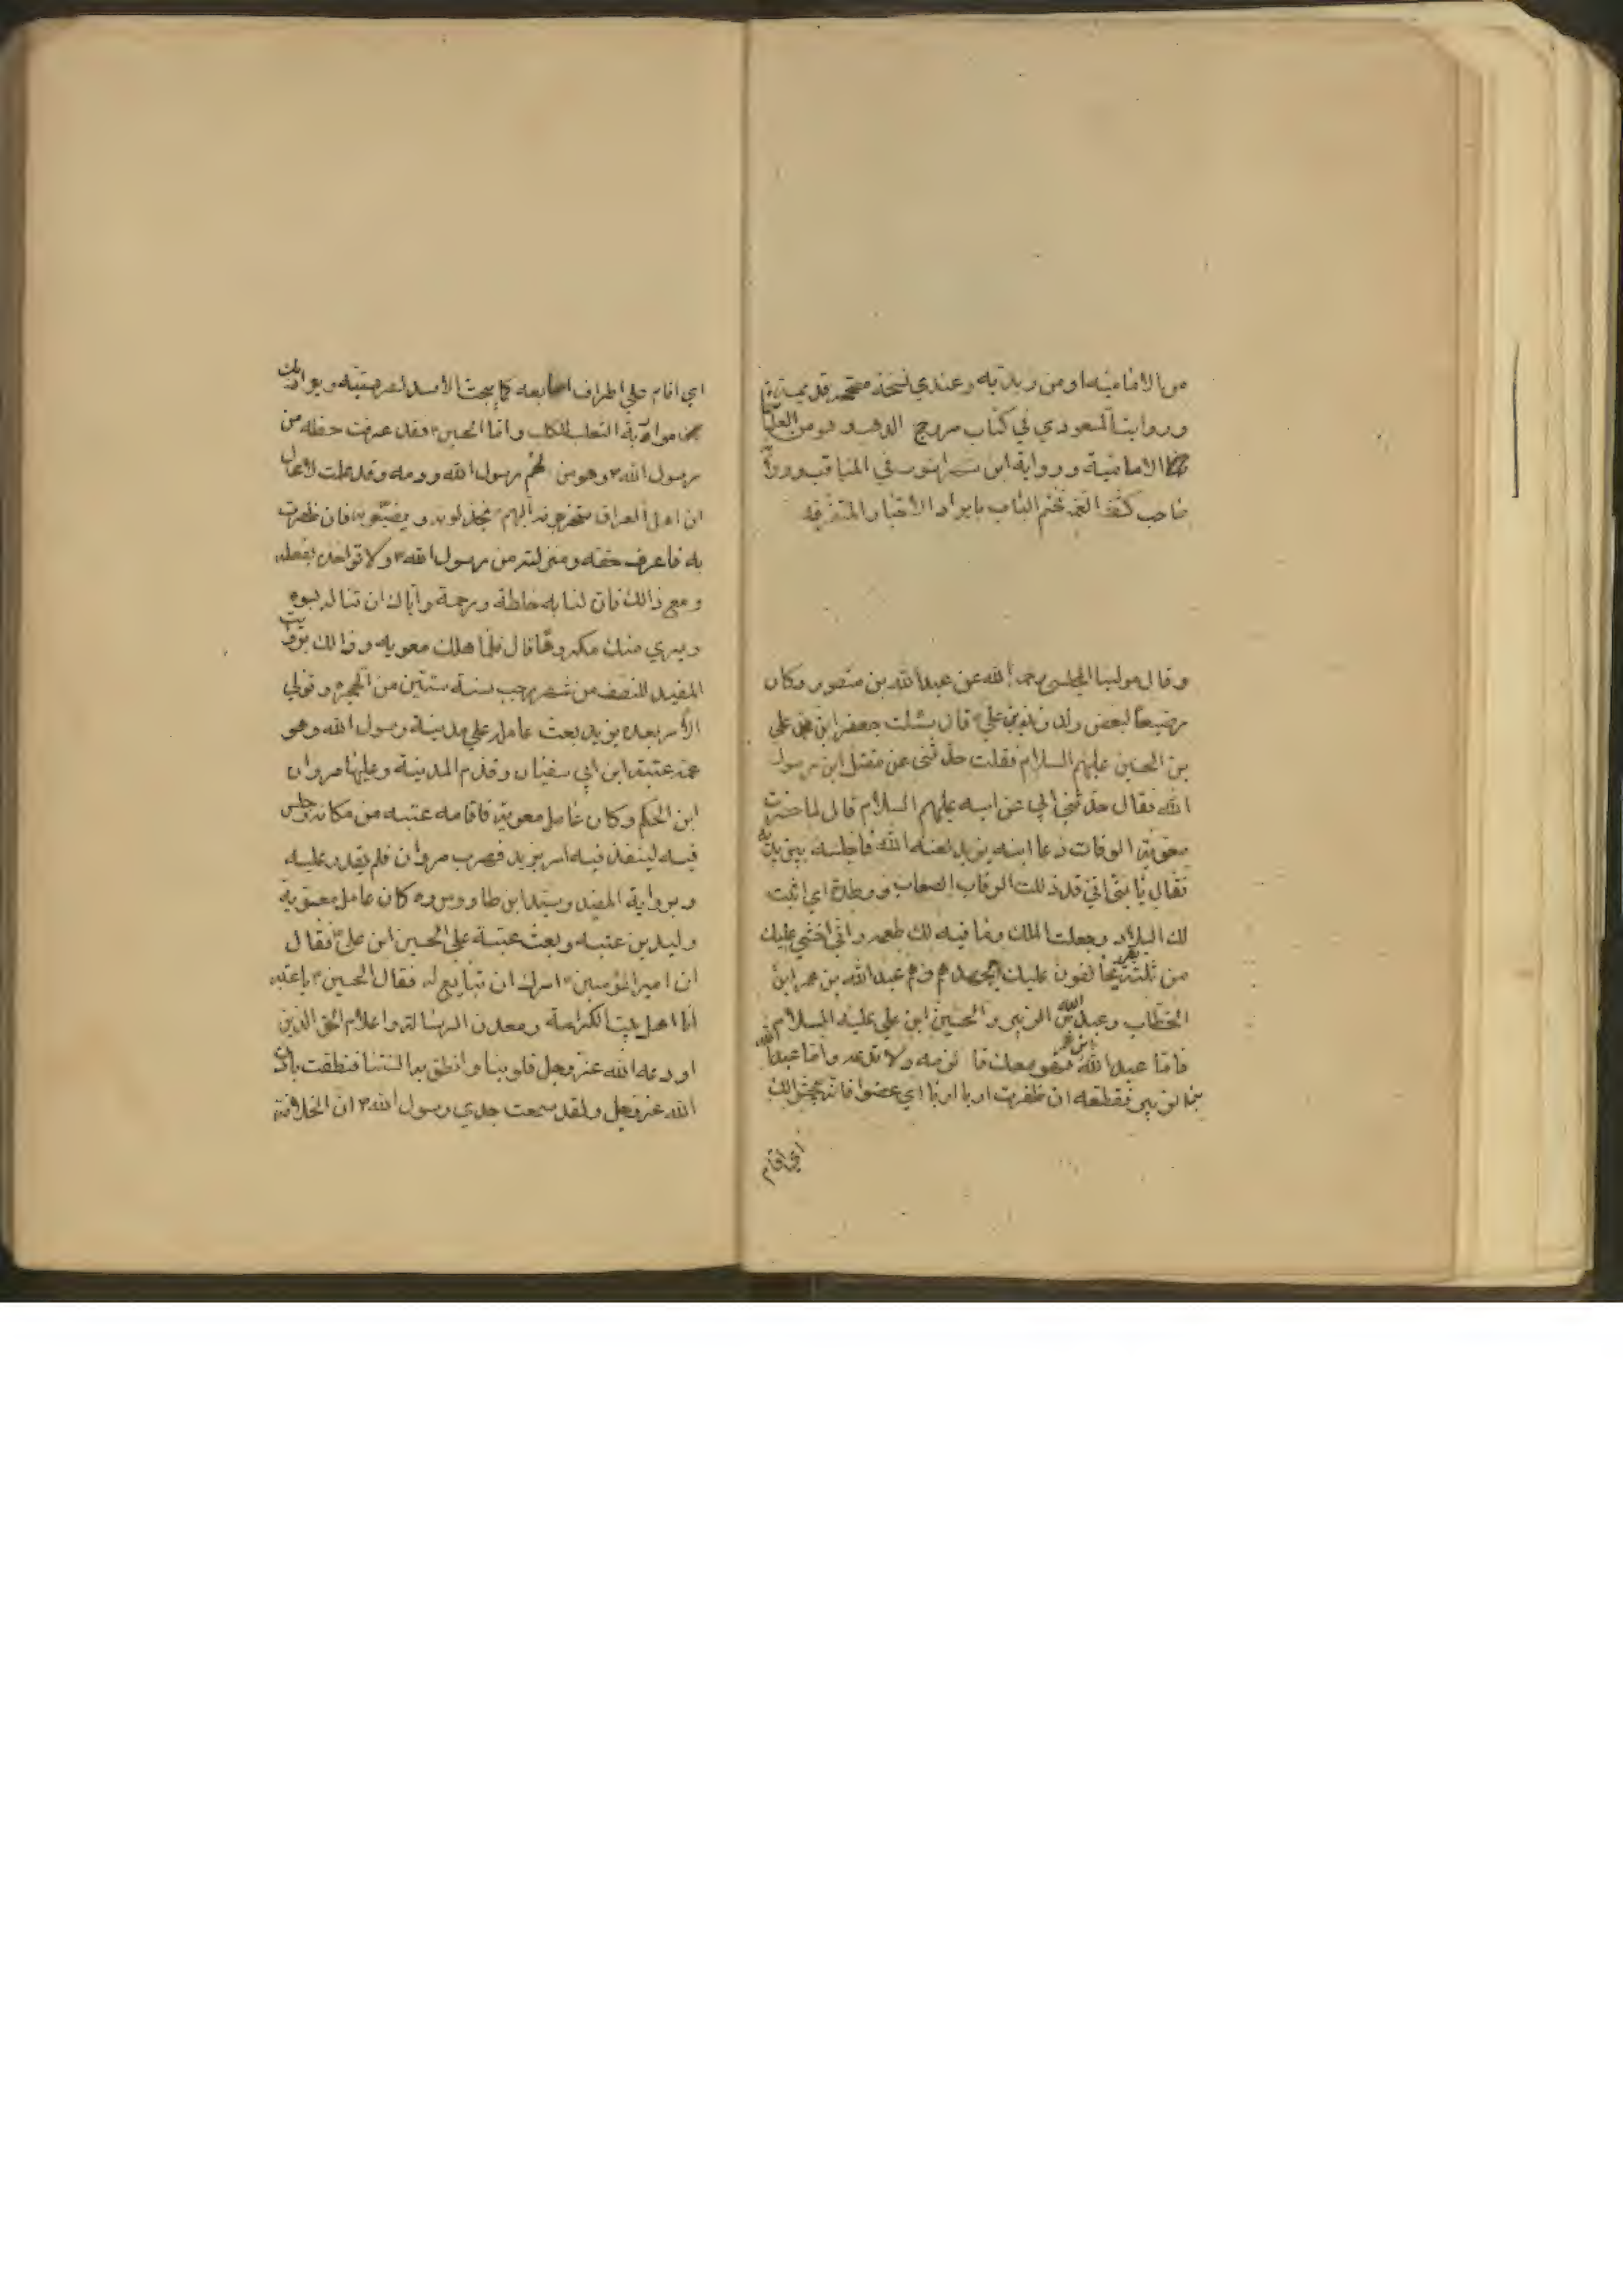 من الامامية او من زيدية وعندي نسخة مصححة قديمة
ورواية المسعودي في كتاب مروج الذهب وهو من العلماء
الامامية ورواية ابن شهراشوب في المناقب ورواية
صاحب كشف الغمة ثم نختم الباب بايراد الاخبار المتفرقه
وقال مولينا المجلسي رحمه الله عن عبد الله بن منصور وكان
رضيعا لبعض ولد زيد بن علي قال سئلت جعفر ابن محمد علي
بن الحسين عليهم السلام فقلت حدثني عن مقتل ابن رسول
الله فقال حدثني ابي عن ابيه عليهم السلام قال لما حضرت
معوية الوفات دعا ابنه يزيد لعنه الله فاجلسه بين يديه
فقال يا بني اني قد ذللت لك الرقاب الصعاب ووطدت اي اثبت
لك البلاد وجعلت الملك وما فيه لك طعمه واني اخشي عليك
من ثلثة نفر يخالفون عليك بجهدهم وهم عبد الله بن عمر ابن
الخطاب وعبد الله بن الزبير والحسين ابن علي عليه السلام
فاما عبد الله ابن عمر فهو معك فالزمه ولا تدعه واما عبد الله
بن الزبير فقطعه ان ظفرت به اربا اربا اي عضوا فانه يجثو لك
اي اقام
اي اقام علي اطراف اصابعه كما يجث الاسد لفريسته ويواربك
مواربة الثعلب للكلب واما الحسين ع فقد عرفت حظه من
رسول الله ص وهو من لحم رسول الله ودمه وقد علمت لا محال
ان اهل العراق ستخرجونه اليهم ثم يخذلونه ويضيعونه فان ظفرت
به فاعرف حقه ومنزلته من رسول الله ص ولا تواخذه بفعله
ومع ذالك فان لنا به خلطة ورحمة واياك ان تناله بسوء
ويري منك مكروها قال فلما هلك معويه وذالك برواية
المفيد للنصف من شهر رجب سنة ستين من الهجرة وتولي
الامر بعده يزيد بعث عامله علي مدينة رسول الله وهو
عمه عتبة ابن ابي سفيان وقدم المدينة وعليها مروان
ابن الحكم وكان عامل معوية فاقامه عتبه من مكانه وجلس
فيه لينفذ فيه امر يزيد فهرب مروان فلم يقدر عليه
وبرواية المفيد وسيد ابن طاووس وه كان عامل معوية
وليد بن عتبه وبعث عتبة علي الحسين ابن علي ع فقال
ان امير المؤمنين امرك ان تبايع له فقال الحسين ع يا عتبه
انا اهل بيت الكرامة ومعدن الرسالة واعلام الحق الذين
اودعه الله عز وجل قلوبنا وانطق به السنتنا فنطقت باذن
الله عز وجل ولقد سمعت جدي رسول الله ص ان الخلافة